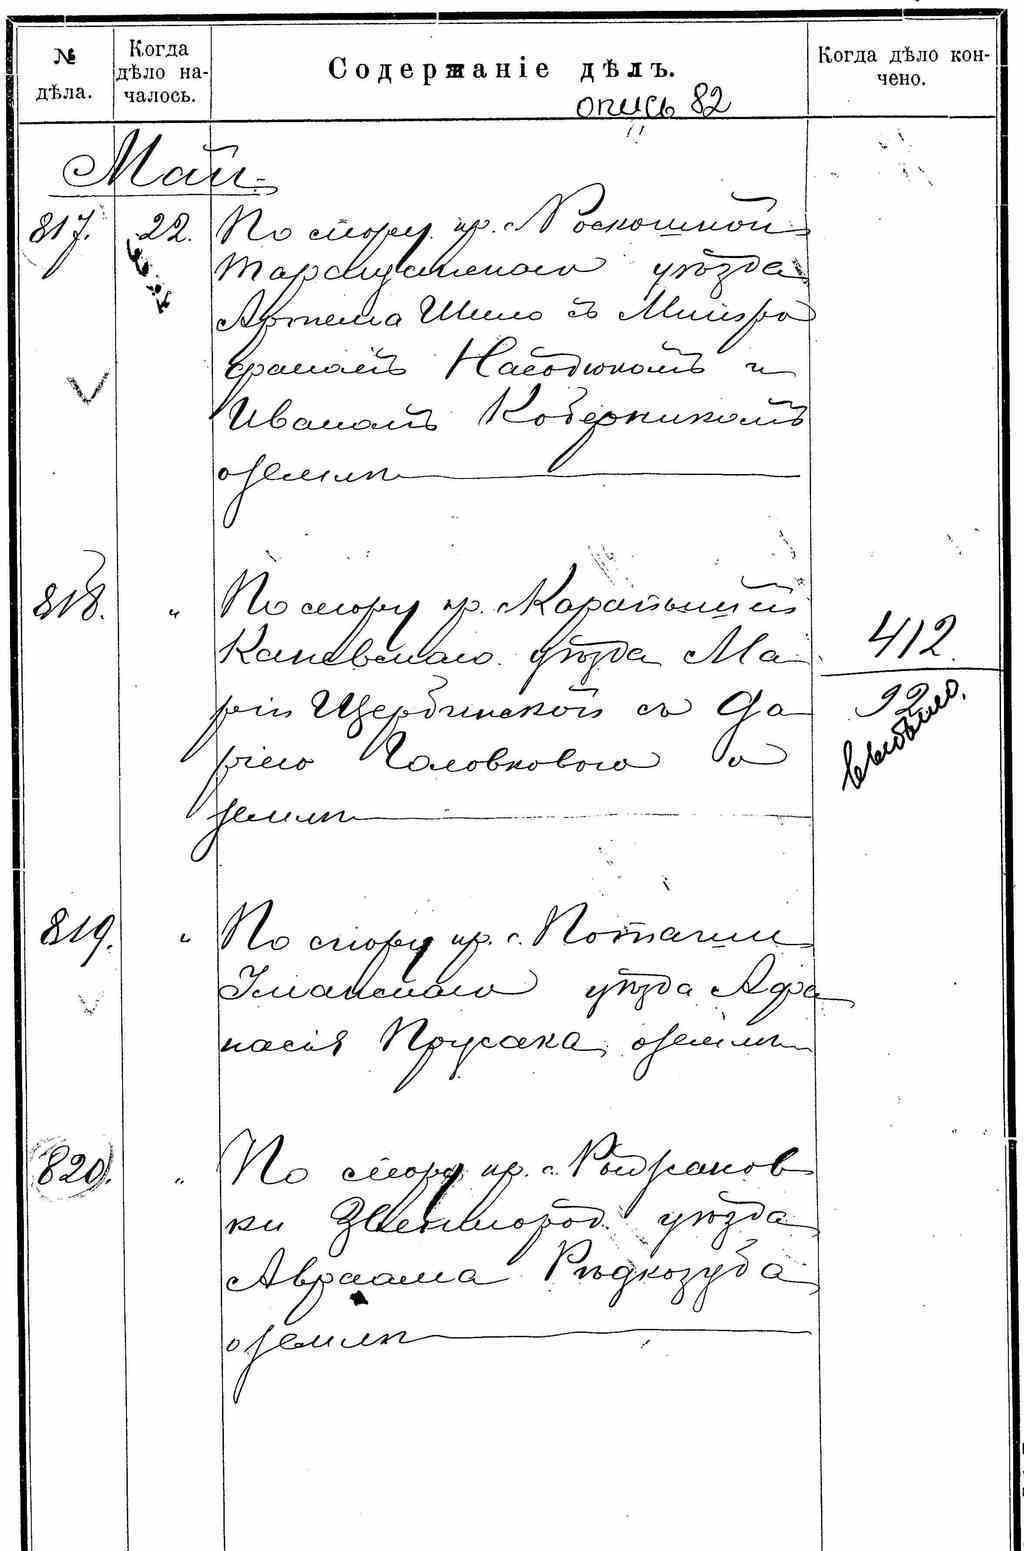 № дѣла.
Когда дѣло началось.
Содержаніе дѣлъ.
Когда дѣло кончено.
опись 82
Май.
817. 22. По спору кр. с. Роскошной
Таращанскаго уѣзда
Артема Шило съ Митро
фаномъ
Иваномъ Коберникомъ
о землѣ
818. " По спору кр. с. Карапышей
Каневскаго уѣзда Ма
ріи Щербинской съ Да
ріею Головковою о
землѣ
412
92
819. " По спору кр. с. Поташни
Уманскаго уѣзда Афа
насія Прусака, о землѣ
820. " По спору кр. с.
ки Звенигород. уѣзда
Авраама Рѣдкозуба
о землѣ